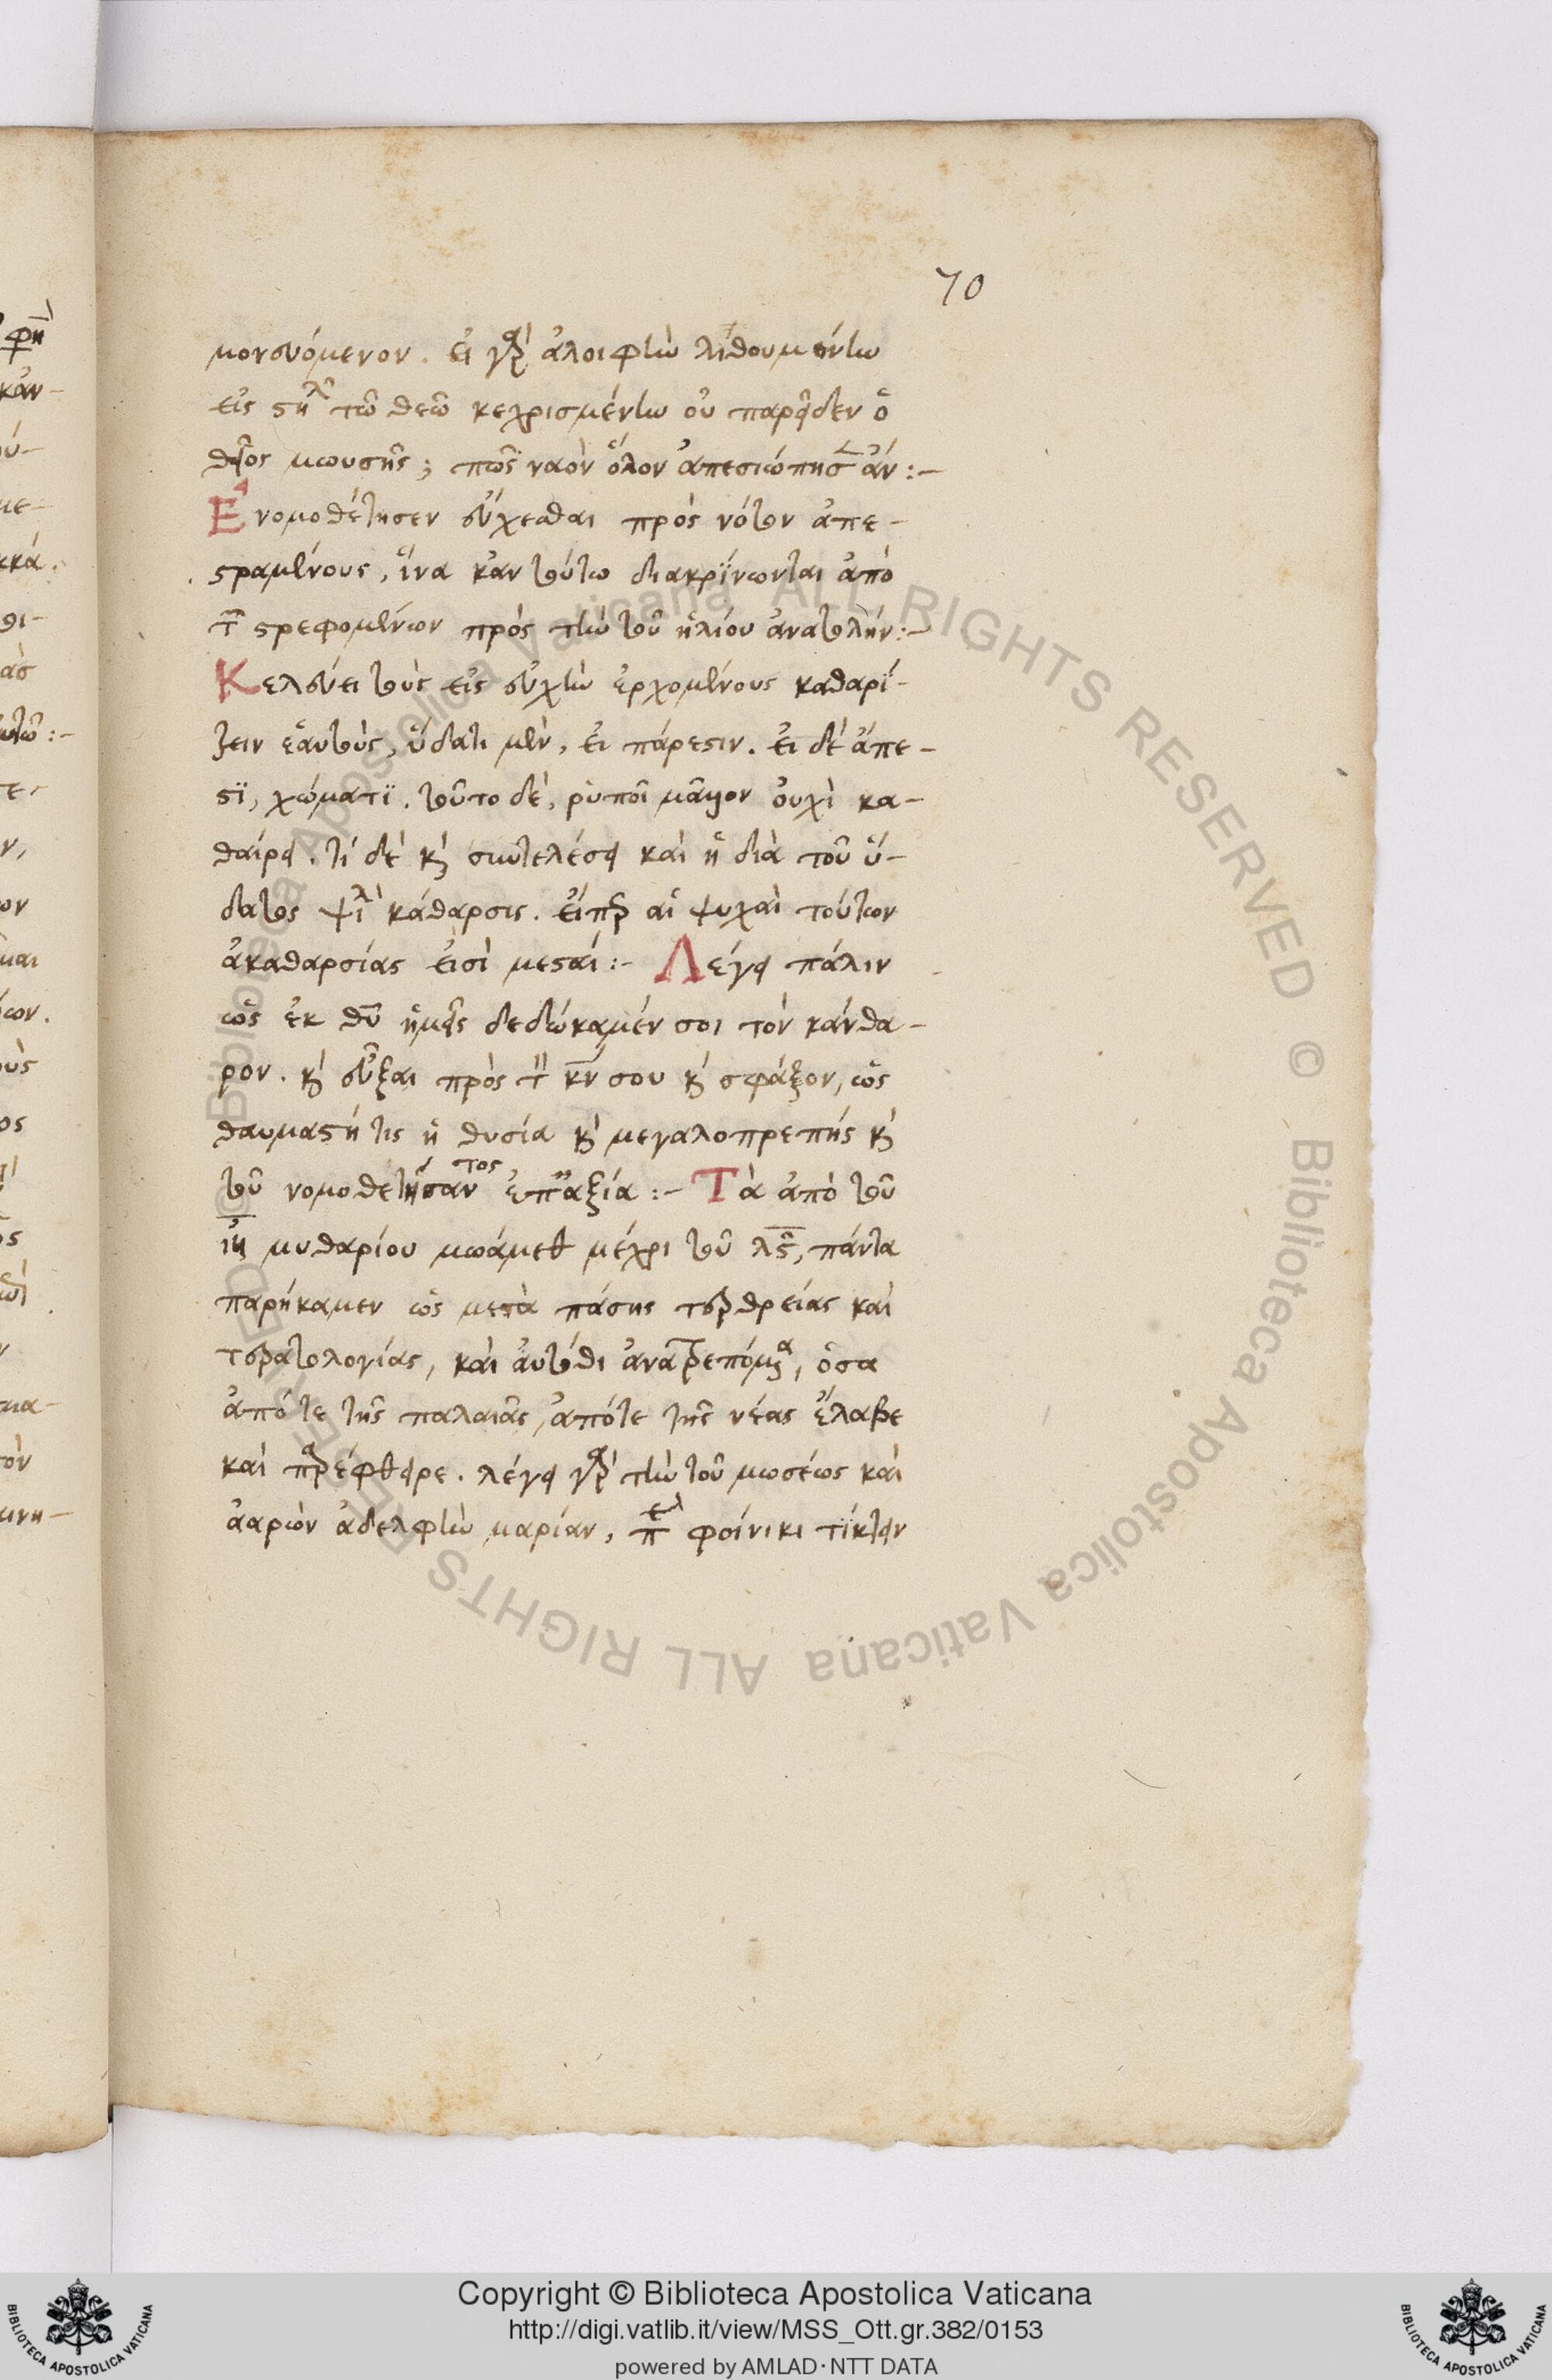 70
μονευόμενον. εἰ γὰρ ἀλοιφὴν λίθου μόνην
εἰς στήλ τῷ θεῷ κεχρισμένην οὐ παρεῖδεν ὁ
θεῖος μωυσῆς; πῶς ναὸν ὅλον ἀπεσιώπησεν ἄν:-
Ἐνομοθέτησεν εὔχεσθαι πρὸς νότον ἀπε-
στραμμένους, ἵνα κἂν τούτω διακρίνωνται ἀπὸ
τῶν στρεφομένων πρὸς τὴν τοῦ ἡλίου ἀνατολήν:-
Κελεύει τοὺς εἰς εὐχὴν ἐρχομένους καθαρί-
ζειν ἑαυτούς, ὕδατι μὲν, εἰ πάρεστιν. εἰ δὲ ἄπε-
στι, χώματι. τοῦτο δὲ, ῥυποῖ μᾶλλον οὐχὶ κα-
θαίρει. τί δὲ καὶ συντελέσει καὶ ἡ διὰ τοῦ ὕ-
δατος ψιλὴ κάθαρσις. εἴπερ αἱ ψυχαὶ τούτων
ἀκαθαρσίας εἰσὶ μεσταί:- Λέγει πάλιν
ὡς ἐκ θυ ἡμεῖς δεδώκαμέν σοι τὸν κάνθα-
ρον. καὶ εὖξαι πρὸς τὸν κν σου καὶ σφάξον, ὡς
θαυμαστή τις ἡ θυσία καὶ μεγαλοπρεπὴς καὶ
τοῦ νομοθετήσαντος ἐπαξία:- Τὰ ἀπὸ τοῦ
ιη μυθαρίου μωάμεθ μέχρι τοῦ λς, πάντα
παρήκαμεν ὡς μεστὰ πάσης τερθρείας καὶ
τερατολογίας, καὶ αὐτόθι ἀνατρεπόμενα, ὅσα
ἀπό τε τῆς παλαιᾶς, ἀπό τε τῆς νέας ἔλαβε
καὶ παρέφθειρε. λέγει γὰρ τὴν τοῦ μωσέως καὶ
ἀαρὼν ἀδελφὴν μαρίαν, φοίνικι τίκτειν
Copyright © Biblioteca Apostolica Vaticana
http://digi.vatlib.it/view/MSS_Ott.gr.382/0153
powered by AMLAD·NTT DATA